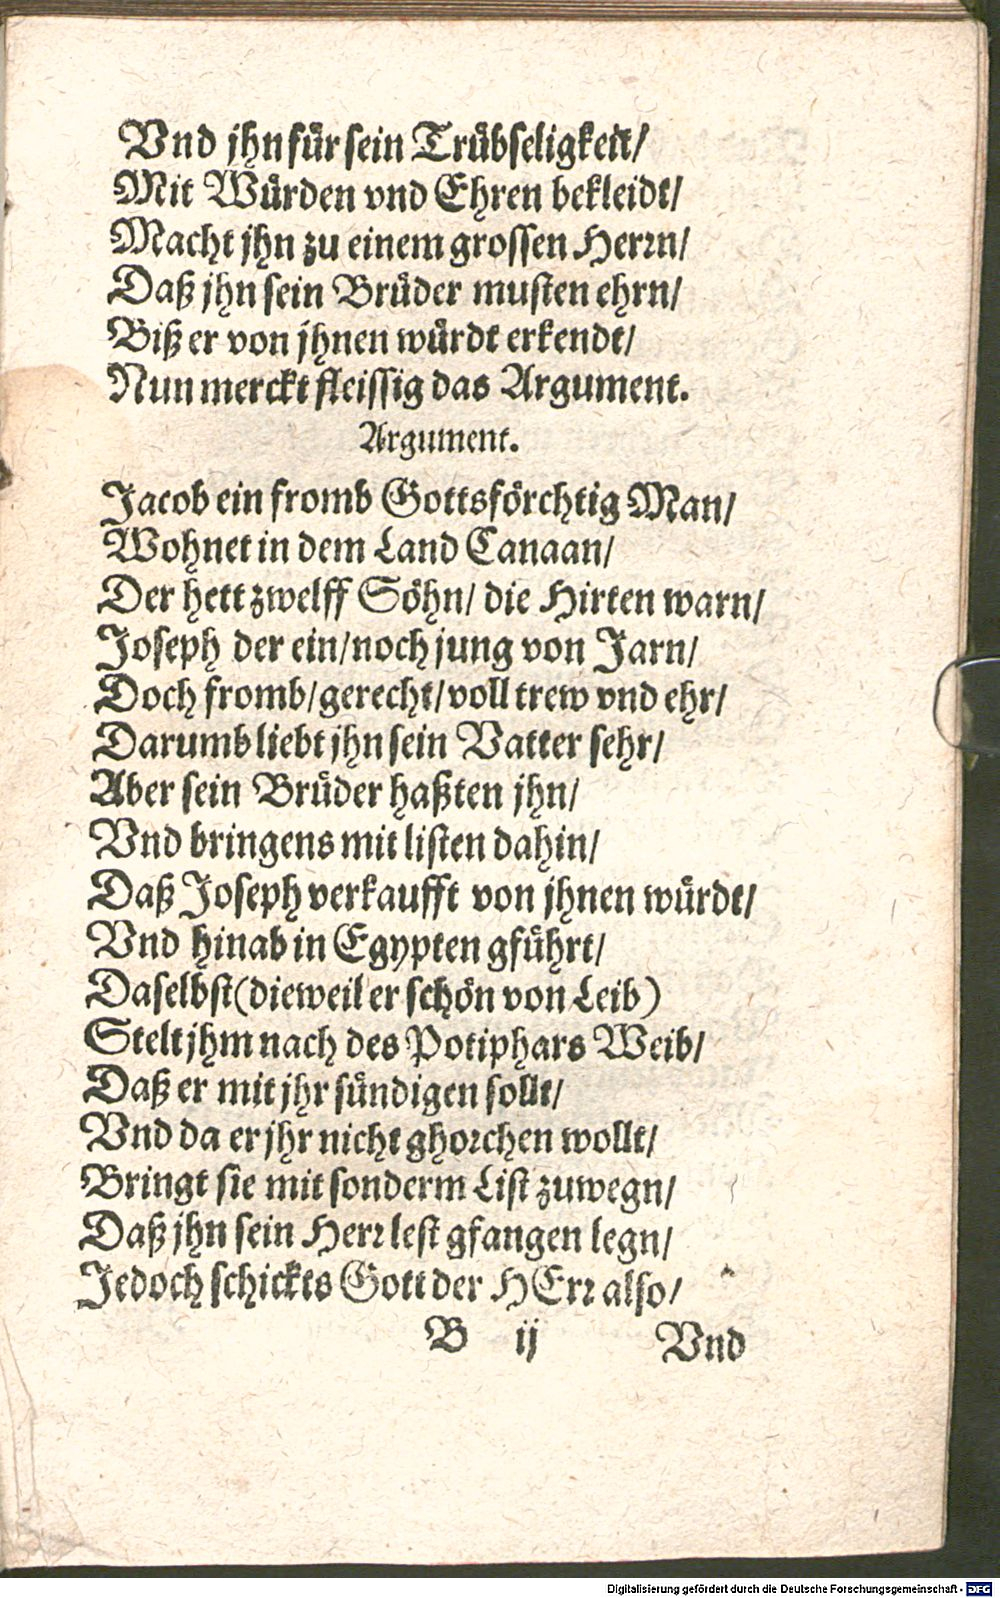 Vnd jhn für sein Trübseligkeit/
Mit Würden vnd Ehren bekleidt/
Macht jhn zu einem grossen Herrn/
Daß jhn sein Brüder musten ehrn/
Biß er von jhnen würdt erkendt/
Nun merckt fleissig das Argument.
Argument.
Jacob ein fromb Gottsförchtig Man/
Wohnet in dem Land Canaan/
Der hett zwelff Söhn/ die Hirten warn/
Joseph der ein/ noch jung von Jarn/
Doch fromb/ gerecht/ voll trew vnd ehr/
Darumb liebt jhn sein Vatter sehr/
Aber sein Brüder haßten jhn/
Vnd bringens mit listen dahin/
Daß Joseph verkaufft von jhnen würdt/
Vnd hinab in Egypten gführt/
Daselbst (dieweil er schön von Leib)
Stelt jhm nach des Potiphars Weib/
Daß er mit jhr sündigen sollt/
Vnd da er jhr nicht ghorchen wollt/
Bringt sie mit sonderm List zuwegn/
Daß jhn sein Herr lest gfangen legn/
Jedoch schickts Gott der HErr also/
B ij Vnd
Digitalisierung gefördert durch die Deutsche Forschungsgemeinschaft - DFG